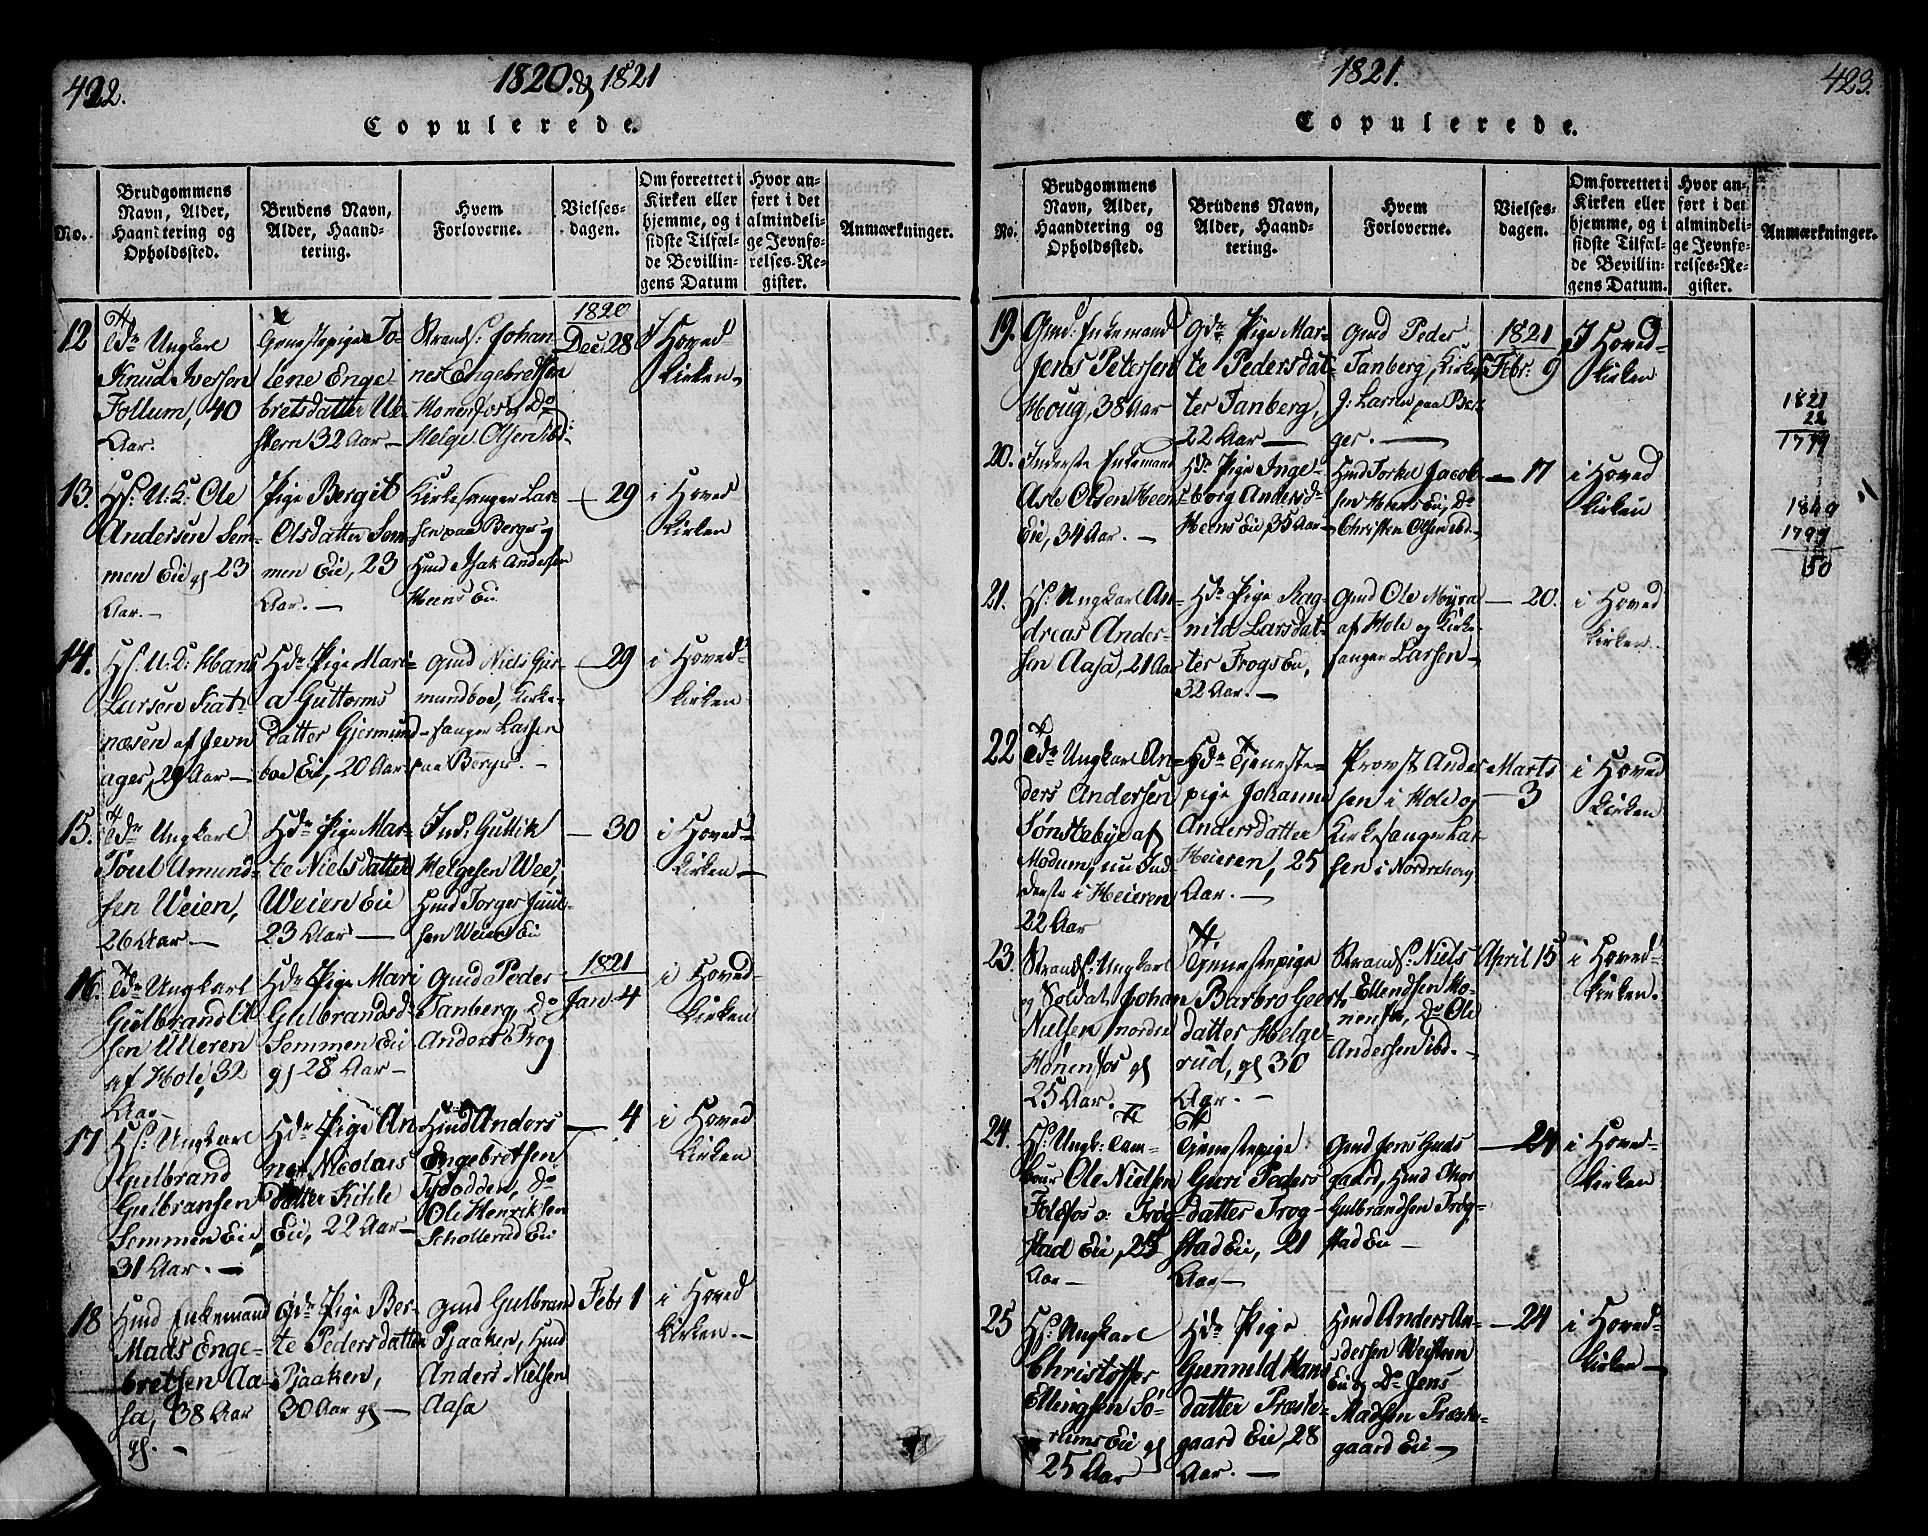 422.
1820 & 1821
Copulerede.
No.
Brudgommens
Navn, Alder,
Haandtering og
Opholdssted.
Brudens Navn,
Alder, Haand-
tering.
Hvem
Forloverne.
Vielses-
dagen.
Om forrettet i
Kirken eller
hjemme, og i
sidste Tilfæl-
de Bevillin-
gens Datum
Hvor an-
ført i det
almindeli-
ge Jevnfø-
relses-Re-
gister.
Anmærkninger.
12
Ungkarl
Knud Iversen
Follum, 40
Aar.
Tjenestepige To-
lene Enge-
bretsdatter Ve-
stern 32 Aar
Strands: Johan-
nes Engebretsen
Hønefos og Do
Helge Olsen ibd:
1820
Dec: 28
I Hoved-
Kirken
13.
Hs: U:K: Ole
Andersen Sem-
men Eie gs 23
Aar.
Pige Bergit
Olsdatter Sem-
men Eie, 23
Aar.
Kirkesanger Lar-
sen paa Berger og
Hmd Isak Andersen
Heens Eie
29
i Hoved
Kirken
14.
Hs: U:K: Hans
Larsen Kat-
nosen af Jevn
ager, 29 Aar
Hds Pige Mari-
a Guttorms
datter Gjermund-
boe Eie, 20 Aar
Gmd Niels Gjer-
mundboe, Kirke-
sanger Larsen
paa Berger.
29
i Hoved-
Kirken
15.
Ungkarl
Poul Amund-
sen Weien,
26 Aar
Hds Pige Mar-
te Nielsdatter
Weien Eie
23 Aar
Ind: Gullik
Helgesen Wee,
Hmd Torger Juul-
sen Weiens Eie
30
i Hoved-
Kirken
16.
Ungkarl
Gulbrand Ol
sen Ulleren
af Hole, 32
Aar
Hds Pige Mari
Gulbrandsd
Semmen Eie
gs 28 Aar
Gmd Peder
Tanberg, Do
Anders Frog
1821
Jan: 4
i Hoved-
Kirken
17
Hs: Ungkarl
Gulbrand
Gulbransen
Semmen Eie,
31 Aar.
Hds Pige An
ne Nicolais
datter Kihle
Eie, 22 Aar
Hmd Anders
Engebretsen
Tyodden, Do
Ole Henriksen
Schollerud Eie
4
i Hoved
Kirken
18
Hmd Enkemand
Mads Enge-
bretsen Aa-
sa, 38 Aar
gs.
Gds Pige Ber-
te Pedersdatter
Pjaaken,
30 Aar gs
Gmd Gulbrand
Pjaaken, Hmd
Anders Nielsen
Aasa
Febr 1
i Hoved
Kirken.
423.
1821.
Copulerede.
No.
Brudgommens
Navn, Alder,
Haandtering og
Opholdssted.
Brudens Navn,
Alder, Haand-
tering.
Hvem
Forloverne.
Vielses-
dagen.
Om forrettet i
Kirken eller
hjemme, og i
sidste Tilfæl-
de Bevillin-
gens Datum.
Hvor an-
ført i det
almindeli-
ge Jevnfø-
relses-Re-
gister.
Anmærkninger.
19.
Gmd: Enkemand
Jens Petersen
Houg, 38 Aar
Gds Pige Mar-
te Pedersdat-
ter Tanberg,
22 Aar
Gmd Peder
Tanberg, Kirkes:
J: Larsen paa Ber
ger.
1821
Febr: 9
I Hoved-
Kirken
1821
22
1799
1849
1799
50
20.
Inderste Enkemand
Asle Olsen Heens
Eie, 34 Aar.
Hds Pige Inge-
borg Andersd
Heens Eie, 35 Aar
Hmd Torkel Jacob-
sen Heens Eie, Do
Christen Olsen ibd.
17
i Hoved
Kirken
21.
Hs: Ungkarl An-
dreas Ander-
sen Aasa, 21 Aar
Hds Pige Rag-
nild Larsdat-
ter Frogs Eie,
32 Aar.
Gmd Ole Myra
af Hole og Kirke-
sanger Larsen
20.
i Hoved
Kirken
22
Ungkarl An-
ders Andersen
Sønstebye af
Modum, nu Ind-
derste i Heieren
22 Aar
Hds Tjeneste-
pige Johanne
Andersdatter
Heieren, 25
Aar.
Provst Ander
sen i Hole og
Kirkesanger Lar-
sen i Nordrehoug
Marts
3
i Hoved
Kirken
23.
Strands: Ungkarl
og Soldat Johan
Nielsen nordre
Hønenfos gs
25 Aar.
Tjenestepige
Barbro Geert-
datter Helge-
rud, gs 30
Aar.
Strands: Niels
Ellendsen Hø-
nenfos, Do Ole
Andersen ibd.
April 15
i Hoved-
Kirken.
24.
Hs: Ungk: Tam-
bour Ole Nielsen
Foldfos o: Frog-
stad Eie, 25
Aar
Tjenestepige
Guri Peders
datter Frog-
stad Eie, 21
Aar
Gmd Jens Guds
gaard, Hmd Thor
Gulbrandsen Frog-
stad Eie
24
i Hoved-
Kirken
25
Hs: Ungkarl
Christoffer
Ellingsen So-
rums Eie gs
25 Aar
Hds Pige
Gunnild Hans
datter Præste-
gaard Eie, 28
Aar.
Hmd Anders An-
dersen Western
Eie og Do Jens
Madsen Præste-
gaard Eie
24
i Hoved-
Kirken